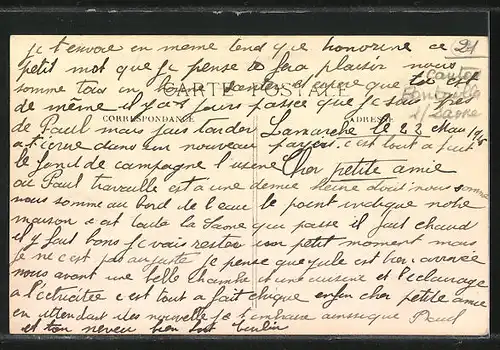 je t'envoie en meme tend que honorine ce
petit mot que je pense te fera plaisir nous
somme tous en bonne santer et espere que toi est
de même il y a 8 jours passée que je suis près
CARTE POSTALE
CORRESPONDANCE
ADRESSE
de Paul mais pas tarder
Lamarche le 22 Mai 19
a t'ecrire dans son nouveau c'est tout a fait
le fond de campagne l'usine
Cher petite amie
ou Paul travaille est a une demie heine dont nous somme
nous somme au bord de l'eau le point indique notre
maison c est toute la Saone qui passe il fait chaud
il y fait bons je vais rester un petit moment mais
je ne c'est pas au juste je pense que Jule est bien arrivée
nous avont une belle chambre et une cuisine et l'eclairage
a l'éctricitée c est tout a fait chique enfin cher petite amie
en attendant des nouvelle je t'embrasse ainssique Paul
et ton neveu bien tout
21
Canton
Pontailler
s/ Saone